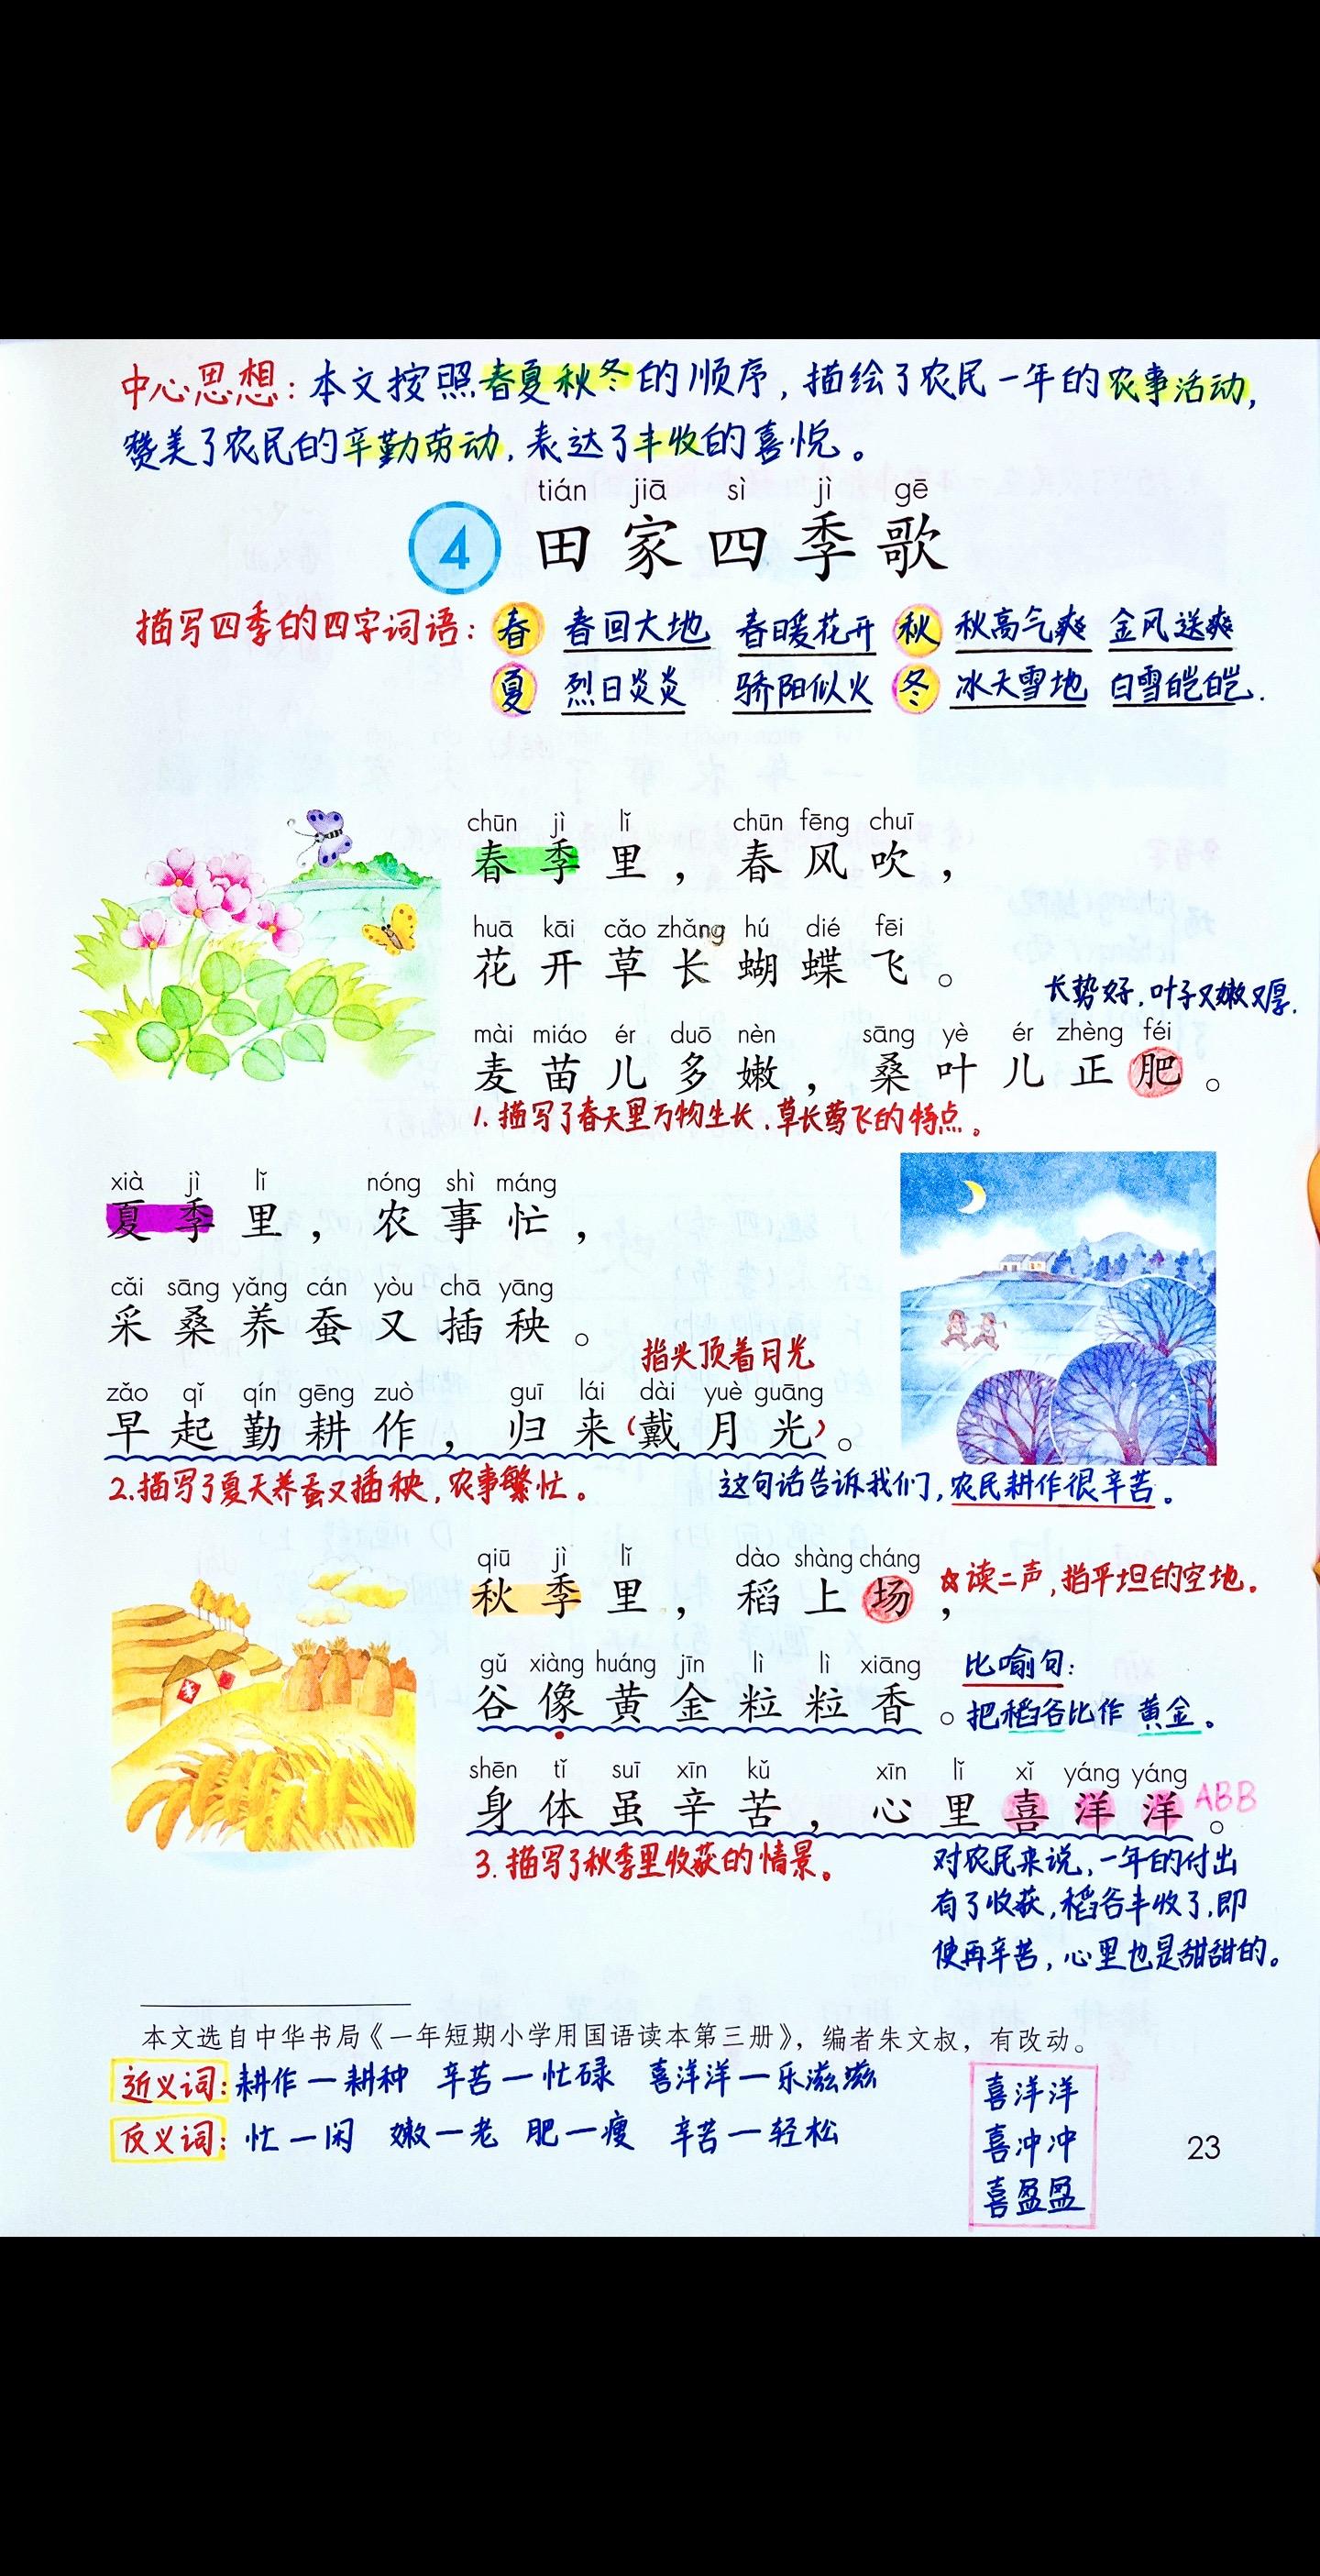 中心思想：本文按照春夏秋冬的顺序，描绘了农民一年的农事活动，
赞美了农民的辛勤劳动，表达了丰收的喜悦。
tián jiā sì jì gē
4 田家四季歌
描写四季的四字词语：春 春回大地 春暖花开 秋 秋高气爽 金风送爽
夏 烈日炎炎 骄阳似火 冬 冰天雪地 白雪皑皑.
chūn jì lǐ chūn fēng chuī
春季里，春风吹，
huā kāi cǎo zhǎng hú dié fēi
花开草长蝴蝶飞。
长势好，叶子又嫩又厚.
mài miáo ér duō nèn sāng yè ér zhèng féi
麦苗儿多嫩，桑叶儿正肥。
1.描写了春天里万物生长、草长莺飞的特点。
xià jì lǐ nóng shì máng
夏季里，农事忙，
cǎi sāng yǎng cán yòu chā yāng
采桑养蚕又插秧。
指头顶着月光
zǎo qǐ qín gēng zuò guī lái dài yuè guāng
早起勤耕作，归来（戴月光）。
2.描写了夏天养蚕又插秧，农事繁忙。 这句话告诉我们，农民耕作很辛苦。
qiū jì lǐ dào shàng cháng
秋季里，稻上场，
☆读二声，指平坦的空地。
gǔ xiàng huáng jīn lì lì xiāng
谷像黄金粒粒香。
比喻句：
把稻谷比作黄金。
shēn tǐ suī xīn kǔ xīn lǐ xǐ yáng yáng
身体虽辛苦，心里喜洋洋。
ABB
3.描写了秋季里收获的情景。
对农民来说，一年的付出
有了收获，稻谷丰收了，即
使再辛苦，心里也是甜甜的。
本文选自中华书局《一年短期小学用国语读本第三册》，编者朱文叔，有改动。
近义词：耕作—耕种 辛苦—忙碌 喜洋洋—乐滋滋
反义词：忙—闲 嫩—老 肥—瘦 辛苦—轻松
喜洋洋
喜冲冲
喜盈盈
23